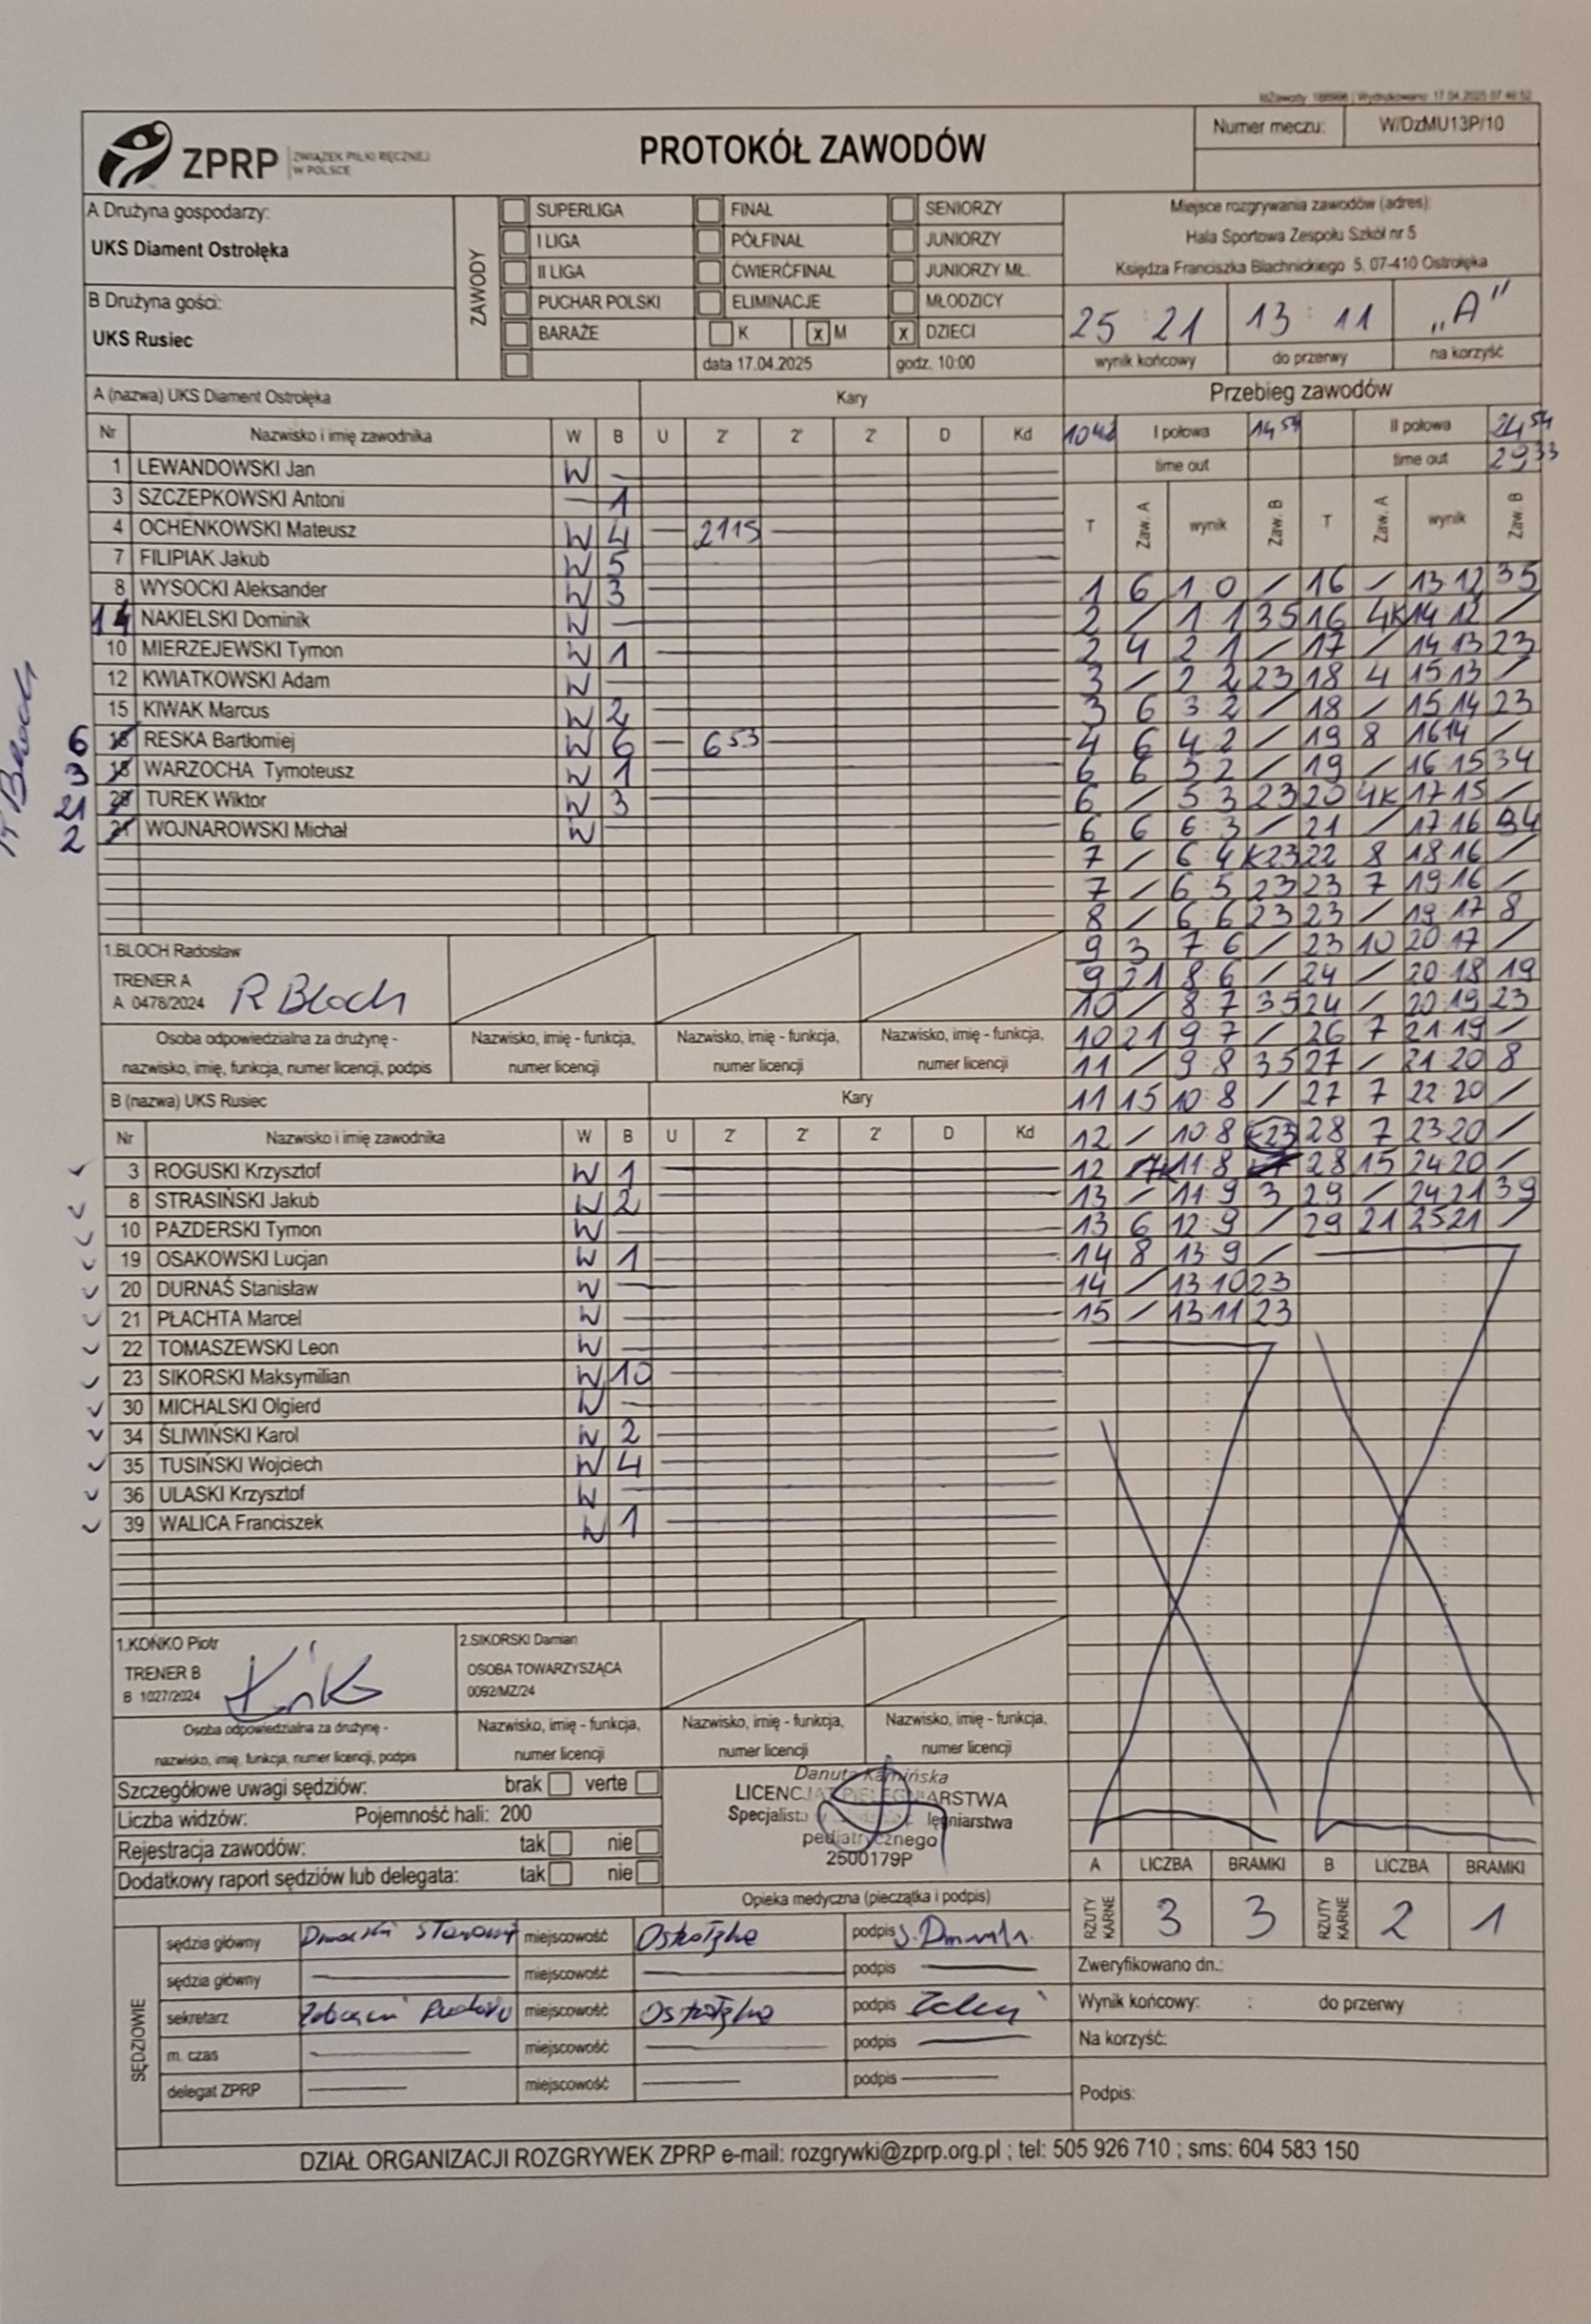 IdZawody: 186986 | Wydrukowano: 17.04.2025 07:46:52
ZPRP ZWIĄZEK PIŁKI RĘCZNEJ W POLSCE
PROTOKÓŁ ZAWODÓW
Numer meczu: W/DzMU13P/10
A Drużyna gospodarzy:
UKS Diament Ostrołęka
B Drużyna gości:
UKS Rusiec
ZAWODY
SUPERLIGA FINAŁ SENIORZY
I LIGA PÓŁFINAŁ JUNIORZY
II LIGA ĆWIERĆFINAŁ JUNIORZY MŁ.
PUCHAR POLSKI ELIMINACJE MŁODZICY
BARAŻE K x M x DZIECI
data 17.04.2025 godz. 10:00
Miejsce rozgrywania zawodów (adres):
Hala Sportowa Zespołu Szkół nr 5
Księdza Franciszka Blachnickiego 5, 07-410 Ostrołęka
25 : 21 13 : 11 „A"
wynik końcowy do przerwy na korzyść
A (nazwa) UKS Diament Ostrołęka Kary
Nr Nazwisko i imię zawodnika W B U 2' 2' 2' D Kd
1 LEWANDOWSKI Jan W
3 SZCZEPKOWSKI Antoni 1
4 OCHENKOWSKI Mateusz W 4 2115
7 FILIPIAK Jakub W 5
8 WYSOCKI Aleksander W 3
14 NAKIELSKI Dominik W
10 MIERZEJEWSKI Tymon W 1
12 KWIATKOWSKI Adam W
15 KIWAK Marcus W 2
6 RESKA Bartłomiej W 6 653
3 WARZOCHA Tymoteusz W 1
21 TUREK Wiktor W 3
2 WOJNAROWSKI Michał W
R Bloch
1.BLOCH Radosław
TRENER A
A 0478/2024 R Bloch
Osoba odpowiedzialna za drużynę -
nazwisko, imię, funkcja, numer licencji, podpis
Nazwisko, imię - funkcja,
numer licencji
Nazwisko, imię - funkcja,
numer licencji
Nazwisko, imię - funkcja,
numer licencji
B (nazwa) UKS Rusiec Kary
Nr Nazwisko i imię zawodnika W B U 2' 2' 2' D Kd
3 ROGUSKI Krzysztof W 1
8 STRASIŃSKI Jakub W 2
10 PAZDERSKI Tymon W
19 OSAKOWSKI Lucjan W 1
20 DURNAŚ Stanisław W
21 PŁACHTA Marcel W
22 TOMASZEWSKI Leon W
23 SIKORSKI Maksymilian W 10
30 MICHALSKI Olgierd W
34 ŚLIWIŃSKI Karol W 2
35 TUSIŃSKI Wojciech W 4
36 ULASKI Krzysztof W
39 WALICA Franciszek W 1
1.KOŃKO Piotr
TRENER B
B 1027/2024
2.SIKORSKI Damian
OSOBA TOWARZYSZĄCA
0092/MZ/24
Osoba odpowiedzialna za drużynę -
nazwisko, imię, funkcja, numer licencji, podpis
Nazwisko, imię - funkcja,
numer licencji
Nazwisko, imię - funkcja,
numer licencji
Nazwisko, imię - funkcja,
numer licencji
Przebieg zawodów
1042 I połowa 1454 II połowa 2454
time out time out 2933
T Zaw. A wynik Zaw. B T Zaw. A wynik Zaw. B
1 6 1 : 0 / 16 / 13 : 12 35
2 / 1 : 1 35 16 4K 14 : 12 /
2 4 2 : 1 / 17 / 14 : 13 23
3 / 2 : 2 23 18 4 15 : 13 /
3 6 3 : 2 / 18 / 15 : 14 23
4 6 4 : 2 / 19 8 16 : 14 /
6 6 5 : 2 / 19 / 16 : 15 34
6 / 5 : 3 23 20 4K 17 : 15 /
6 6 6 : 3 / 21 / 17 : 16 34
7 / 6 : 4 K23 22 8 18 : 16 /
7 / 6 : 5 23 23 7 19 : 16 /
8 / 6 : 6 23 23 / 19 : 17 8
9 3 7 : 6 / 23 10 20 : 17 /
9 21 8 : 6 / 24 / 20 : 18 19
10 / 8 : 7 35 24 / 20 : 19 23
10 21 9 : 7 / 26 7 21 : 19 /
11 / 9 : 8 35 27 / 21 : 20 8
11 15 10 : 8 / 27 7 22 : 20 /
12 / 10 : 8 K23 28 7 23 : 20 /
12 7K 11 : 8 28 15 24 : 20 /
13 / 11 : 9 3 29 / 24 : 21 39
13 6 12 : 9 / 29 21 25 : 21 /
14 8 13 : 9 /
14 / 13 : 10 23
15 / 13 : 11 23
Szczegółowe uwagi sędziów: brak verte
Liczba widzów: Pojemność hali: 200
Rejestracja zawodów: tak nie
Dodatkowy raport sędziów lub delegata: tak nie
Danuta Kamińska
LICENCJAT PIELĘGNIARSTWA
pediatrycznego
2500179P
Opieka medyczna (pieczątka i podpis)
A LICZBA BRAMKI B LICZBA BRAMKI
RZUTY KARNE 3 3 RZUTY KARNE 2 1
SĘDZIOWIE
sędzia główny miejscowość Ostrołęka podpis
sędzia główny miejscowość podpis
sekretarz miejscowość Ostrołęka podpis
m. czas miejscowość podpis
delegat ZPRP miejscowość podpis
Zweryfikowano dn.:
Wynik końcowy: : do przerwy :
Na korzyść:
Podpis:
DZIAŁ ORGANIZACJI ROZGRYWEK ZPRP e-mail: rozgrywki@zprp.org.pl ; tel: 505 926 710 ; sms: 604 583 150